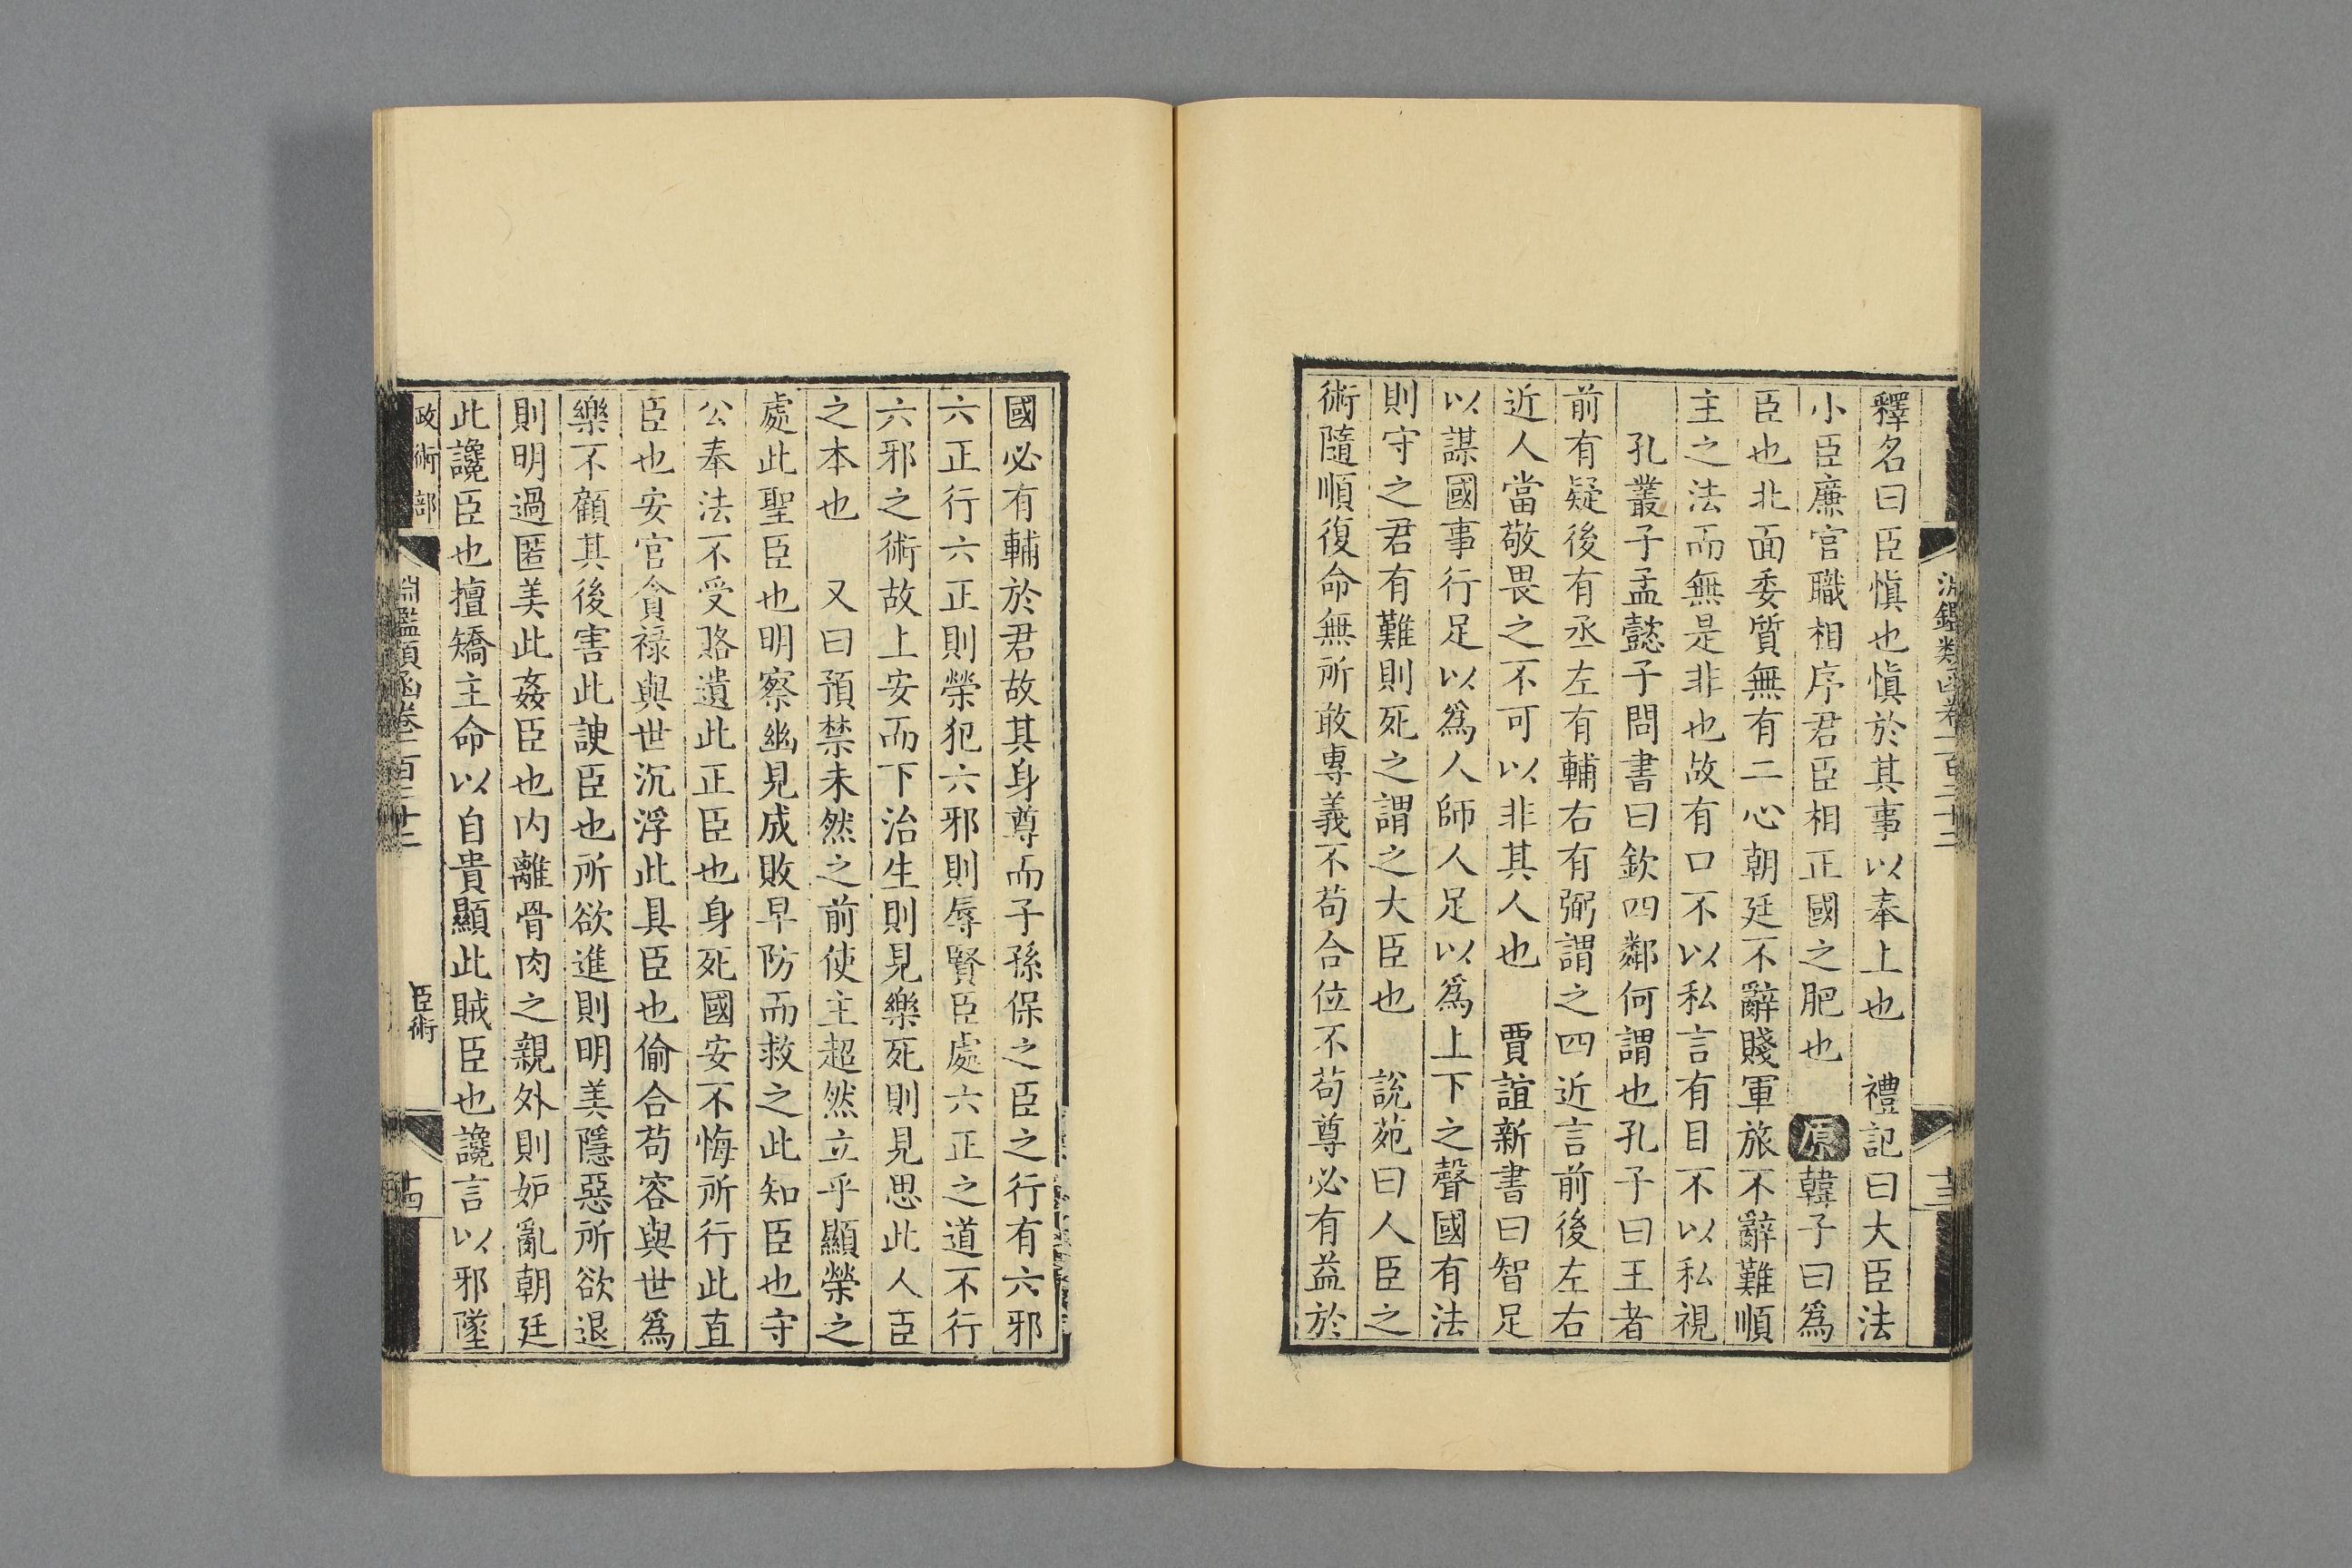 淵鑑類函卷一百二十二
十三
釋名曰臣愼也愼於其事以奉上也　禮記曰大臣法
小臣廉官職相序君臣相正國之肥也　原韓子曰爲
臣也北面委質無有二心朝廷不辭賤軍旅不辭難順
主之法而無是非也故有口不以私言有目不以私視
孔叢子孟懿子問書曰欽四鄰何謂也孔子曰王者
前有疑後有丞左有輔右有弼謂之四近言前後左右
近人當敬畏之不可以非其人也　賈誼新書曰智足
以謀國事行足以爲人師人足以爲上下之聲國有法
則守之君有難則死之謂之大臣也　說苑曰人臣之
術隨順復命無所敢專義不苟合位不苟尊必有益於
國必有輔於君故其身尊而子孫保之臣之行有六邪
六正行六正則榮犯六邪則辱賢臣處六正之道不行
六邪之術故上安而下治生則見樂死則見思此人臣
之本也　又曰預禁未然之前使主超然立乎顯榮之
處此聖臣也明察幽見成敗早防而救之此知臣也守
公奉法不受賂遺此正臣也身死國安不悔所行此直
臣也安官貪祿與世沉浮此具臣也偷合苟容與世爲
樂不顧其後害此諛臣也所欲進則明美隱惡所欲退
則明過匿美此姦臣也內離骨肉之親外則妒亂朝廷
此讒臣也擅矯主命以自貴顯此賊臣也讒言以邪墜
政術部
淵鑑類函卷一百二十二
臣術
十四